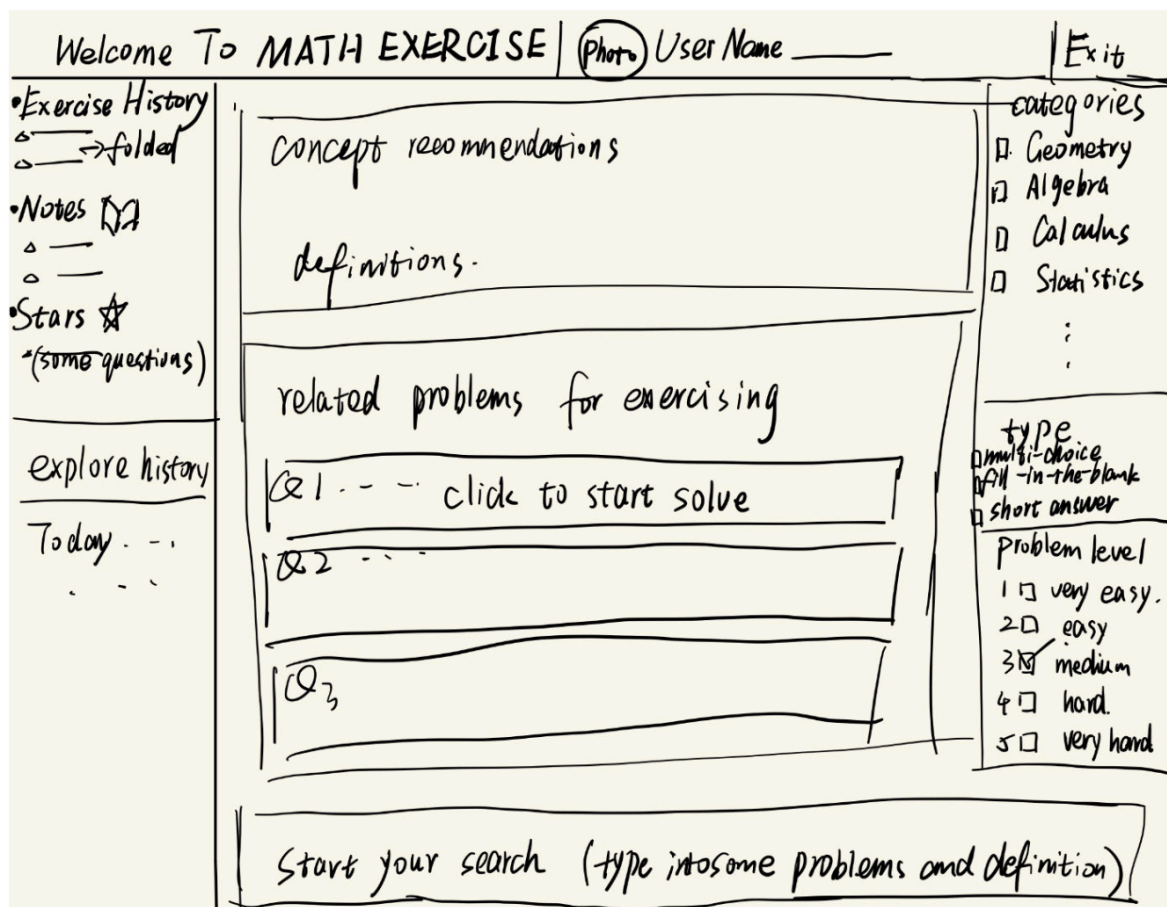 Welcome To MATH EXERCISE
Photo
User Name
Exit
Exercise History
folded
Notes
Stars
(some questions)
explore history
Today
concept recommendations
definitions.
related problems for exercising
Q1 click to start solve
Q2
Q3
start your search (type into some problems and definition)
categories
Geometry
Algebra
Calculus
Statistics
type
multi-choice
fill-in-the-blank
short answer
problem level
1 very easy.
2 easy
3 medium
4 hard.
5 very hard